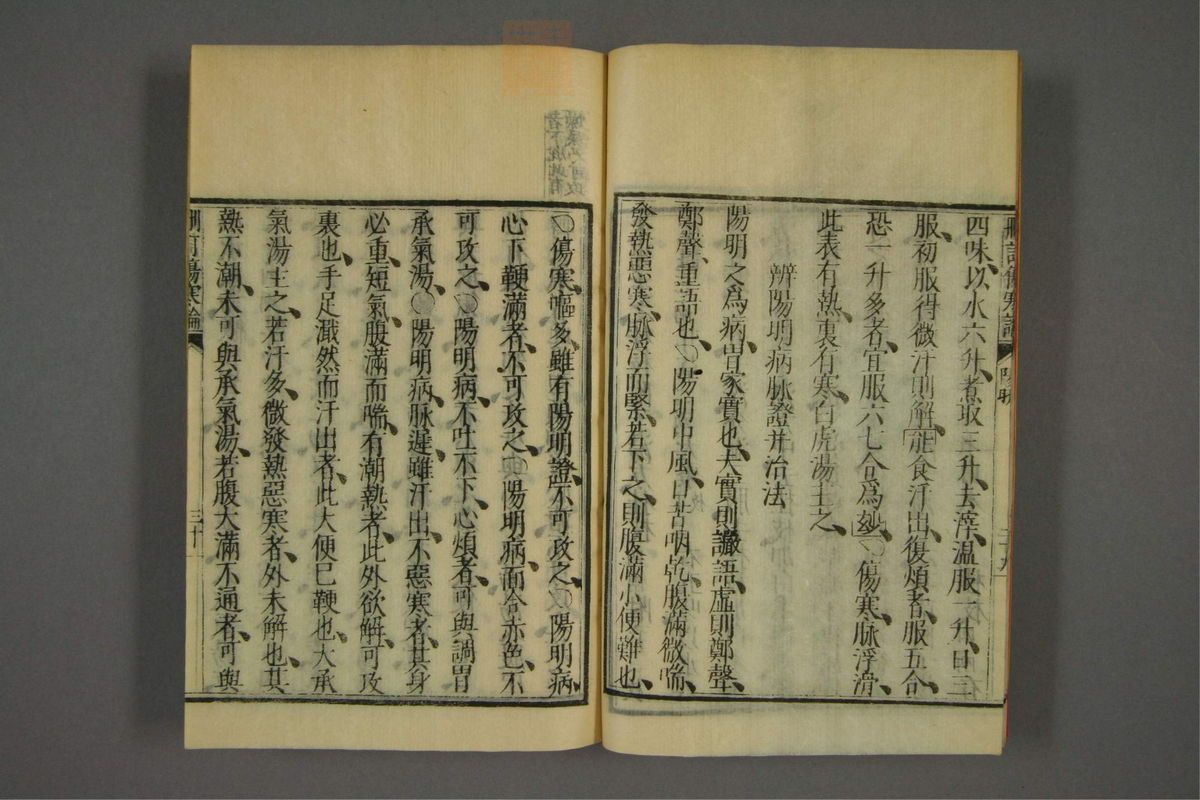 四味、以水六升、煮取三升、去滓、温服一升、日三
服、初服得微汗則解、能食汗出、復煩者、服五合、
恐一升多者、宜服六七合爲妙、〇傷寒、脉浮滑、
此表有熱、裏有寒、白虎湯主之、
辨陽明病脉證并治法
陽明之爲病、胃家實也、夫實則讝語、虛則鄭聲、
鄭聲、重語也、〇陽明中風、口苦咽乾、腹滿微喘、
發熱惡寒、脉浮而緊、若下之、則腹滿小便難也、
〇傷寒、嘔多、雖有陽明證、不可攻之、〇陽明病、
心下鞕滿者、不可攻之、〇陽明病、面合赤色、不
可攻之、〇陽明病、不吐不下、心煩者、可與調胃
承氣湯、〇陽明病、脉遲、雖汗出、不惡寒者、其身
必重、短氣、腹滿而喘、有潮熱者、此外欲解、可攻
裏也、手足濈然而汗出者、此大便已鞕也、大承
氣湯主之、若汗多、微發熱惡寒者、外未解也、其
熱不潮、未可與承氣湯、若腹大滿不通者、可與
刪訂傷寒論
三十